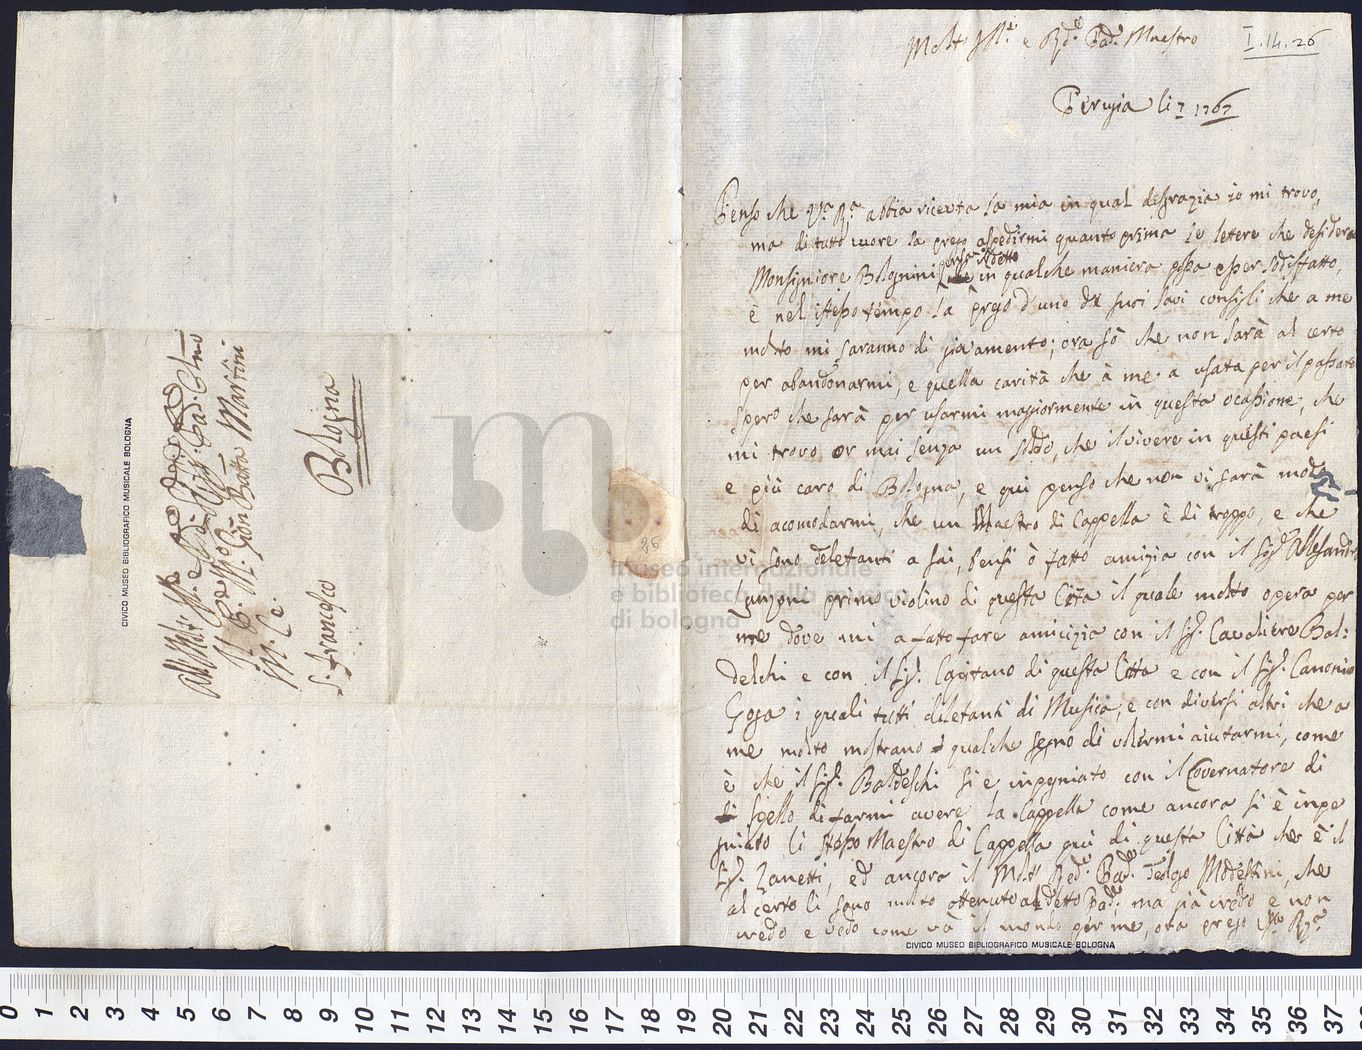 All Molto
Gio: Batta Martini
M. C.
S: Francesco
Bologna
CIVICO MUSEO BIBLIOGRAFICO MUSICALE BOLOGNA
museo internazionale
e biblioteca della musica
di bologna
26
Molt Ill.e e Rd.o Pad.e Maestro
I.14.26
Perugia li 7 1767
Penso che V.a R.a abbia riceuta la mia in qual desgrazia io mi trovo,
ma di tutto cuore la prego aspedirmi quanto prima le lettere che desidera
Monsigniore Bolognini in qualche maniera possa esser sodisfatto,
è nel istesso tempo la prego d'uno di suoi savi consigli che a me
molto mi saranno di giovamento; ora sò che non sarà al certo
per abandonarmi, e quella carità che à me a usata per il passato
spero che sarà per usarmi magiormente in questa ocasione, che
mi trovo or mai senza un soldo, che il vivere in questi paesi
e più caro di Bologna, e qui penso che non vi sarà modo
di acomodarmi, che un Maestro di Cappella è di troppo, e che
vi sono deletanti a sai, pensi ò fatto amizia con il Sig.r Allesandro
primo violino di questa Città il quale molto opera per
me dove mi a fatto fare amicizia con il Sig.r Cavaliere Bal:
delchi e con il Sig.r Capitano di questa Città e con il Sig.r Canonico
Goga i quali tutti diletanti di Musica, e con diversi altri che a
me molto mostrano qualche segno di volermi aiutarmi, come
è che il Sig.r Baldeschi si e inpegniato con il Governatore di
Spello di farmi avere la Cappella come ancora si è inpe
gniato li stesso Maestro di Cappella qui di questa Città che è il
Sig.r Zanetti, ed ancora il Molt Red.o Pad.e Modestini, che
al certo li sono molto detto Pad.e, ma già credo e non
credo e vedo come và il mondo per me, ora prego V.ra R.za
CIVICO MUSEO BIBLIOGRAFICO MUSICALE BOLOGNA
0 1 2 3 4 5 6 7 8 9 10 11 12 13 14 15 16 17 18 19 20 21 22 23 24 25 26 27 28 29 30 31 32 33 34 35 36 37